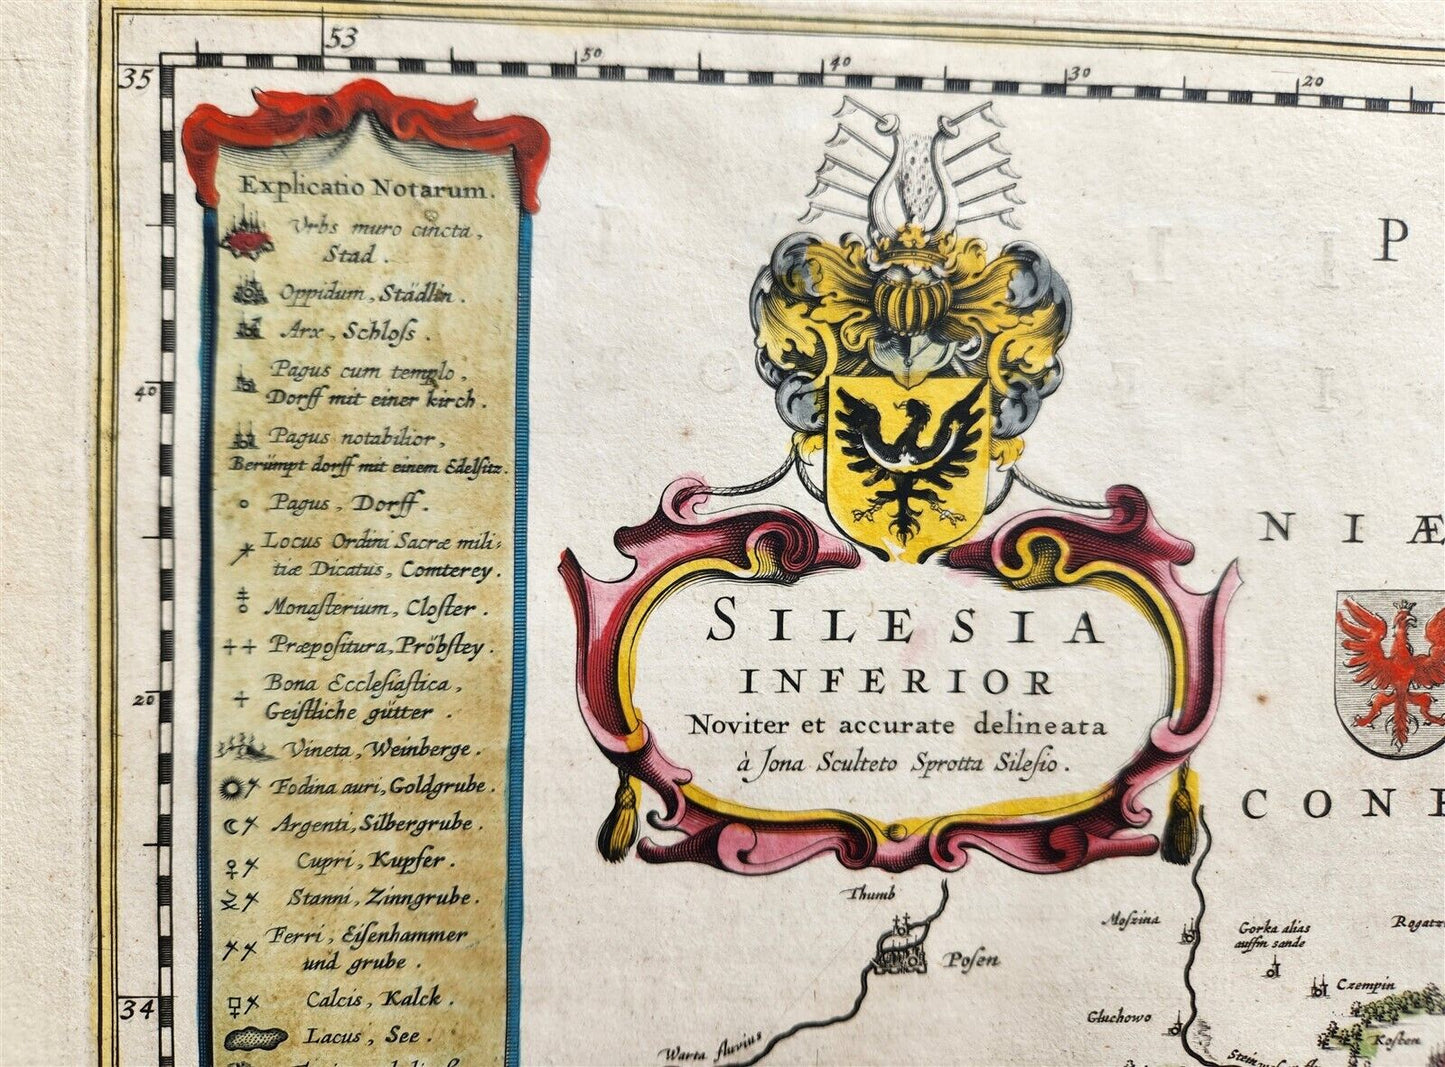 53
50
40
30
20
35
40
20
34
Explicatio Notarum.
Vrbs muro cincta,
Stad.
Oppidum, Städlin.
Arx, Schloſs.
Pagus cum templo,
Dorff mit einer kirch.
Pagus notabilior,
Berümpt dorff mit einem Edelſitz.
Pagus, Dorff.
Locus Ordini Sacræ mili:
tiæ Dicatus, Comterey.
Monaſterium, Cloſter.
Præpoſitura, Pröbſtey.
Bona Eccleſiaſtica,
Geiſtliche gütter.
Vineta, Weinberge.
Fodina auri, Goldgrube.
Argenti, Silbergrube.
Cupri, Kupfer.
Stanni, Zinngrube.
Ferri, Eiſenhammer
und grube.
Calcis, Kalck.
Lacus, See.
SILESIA
INFERIOR
Noviter et accurate delineata
à Jona Sculteto Sprotta Sileſio.
P
NIÆ
CON
Thumb
Poſen
Warta fluvius
Moſzina
Gorka alias
auffm sande
Rogatz
Czempin
Gluchowo
Koſten